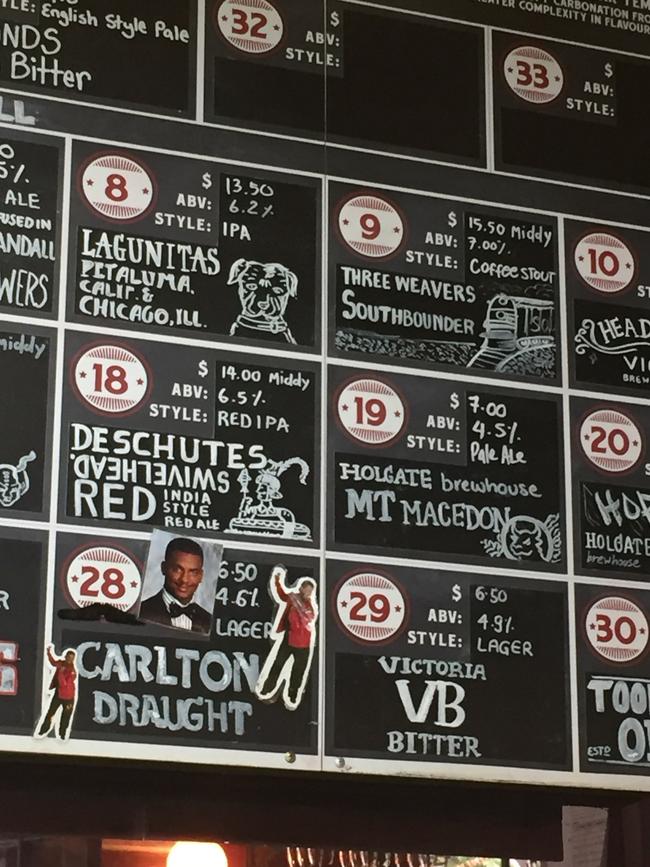 YLE: English Style Pale
ONDS
Bitter
LL
32
$
ABV:
STYLE:
CARBONATION FRO
EATER COMPLEXITY IN FLAVOUR
33
$
ABV:
STYLE:
5%
ALE
FUSED IN
ANDALL
WERS
8
$ 13.50
ABV: 6.2%
STYLE: IPA
LAGUNITAS
PETALUMA,
CALIF. &
CHICAGO, ILL.
9
$ 15.50 Middy
ABV: 7.00%
STYLE: Coffee STOUT
THREE WEAVERS
SOUTHBOUNDER
10
HEAD
VIC
BREW
middy
18
$ 14.00 Middy
ABV: 6.5%
STYLE: RED IPA
DESCHUTES
SWIVELHEAD
RED
INDIA
STYLE
RED ALE
19
$ 7.00
ABV: 4.5%
STYLE: Pale Ale
HOLGATE brewhouse
MT MACEDON
20
HOP
HOLGATE
brewhouse
28
6.50
4.6%
LAGER
CARLTON
DRAUGHT
29
$ 6.50
ABV: 4.9%
STYLE: LAGER
VICTORIA
VB
BITTER
30
TOO
ESTD